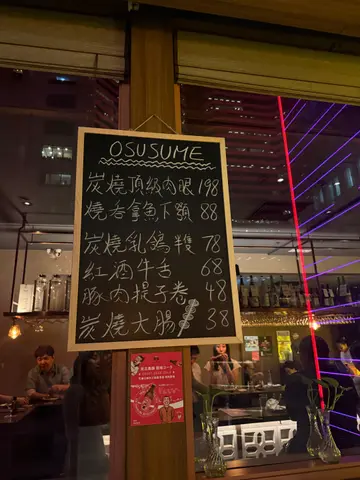 OSUSUME
炭燒頂級肉眼 198
燒吞拿魚下顎 88
炭燒乳鴿半隻 78
紅酒牛舌 68
豚肉提子卷 48
炭燒大腸 38